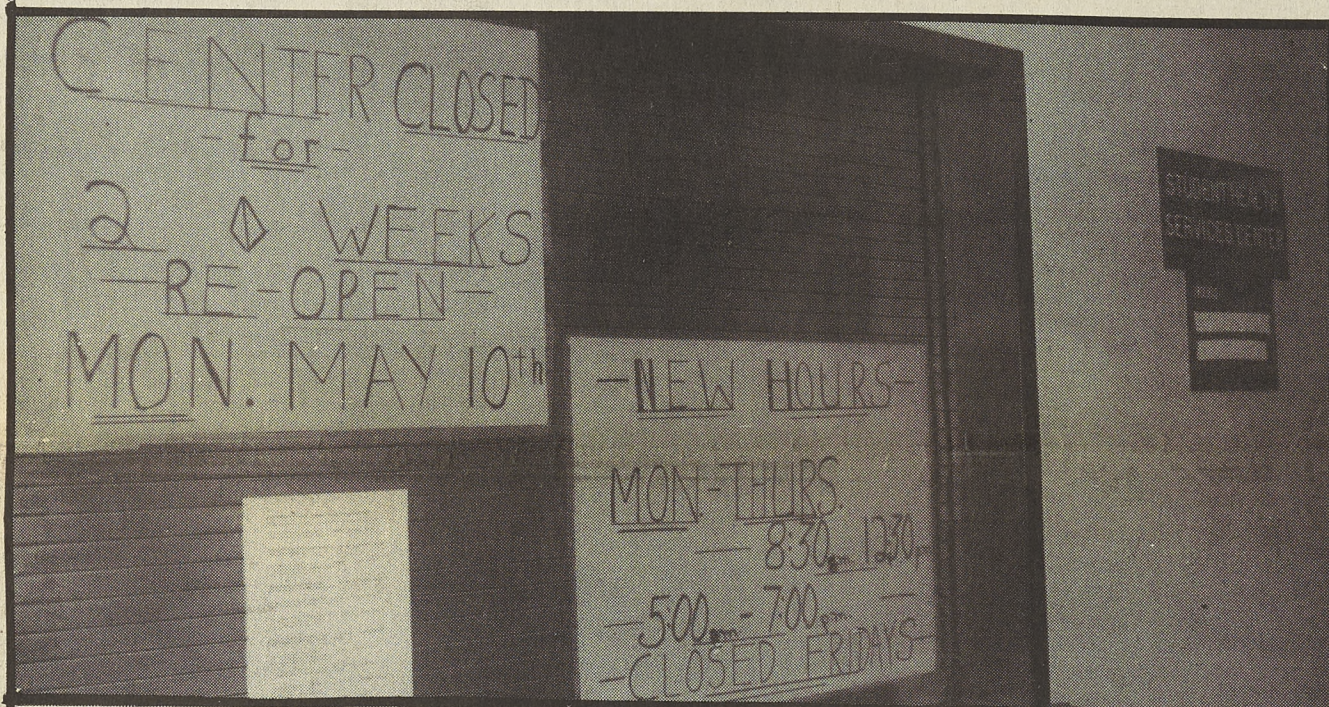 CENTER CLOSED
-for-
2 WEEKS
-RE-OPEN-
MON. MAY 10th
-NEW HOURS-
MON.-THURS.
- 8:30am 12:30pm
-5:00pm-7:00pm-
-CLOSED FRIDAYS-
STUDENT HEALTH
SERVICES CENTER